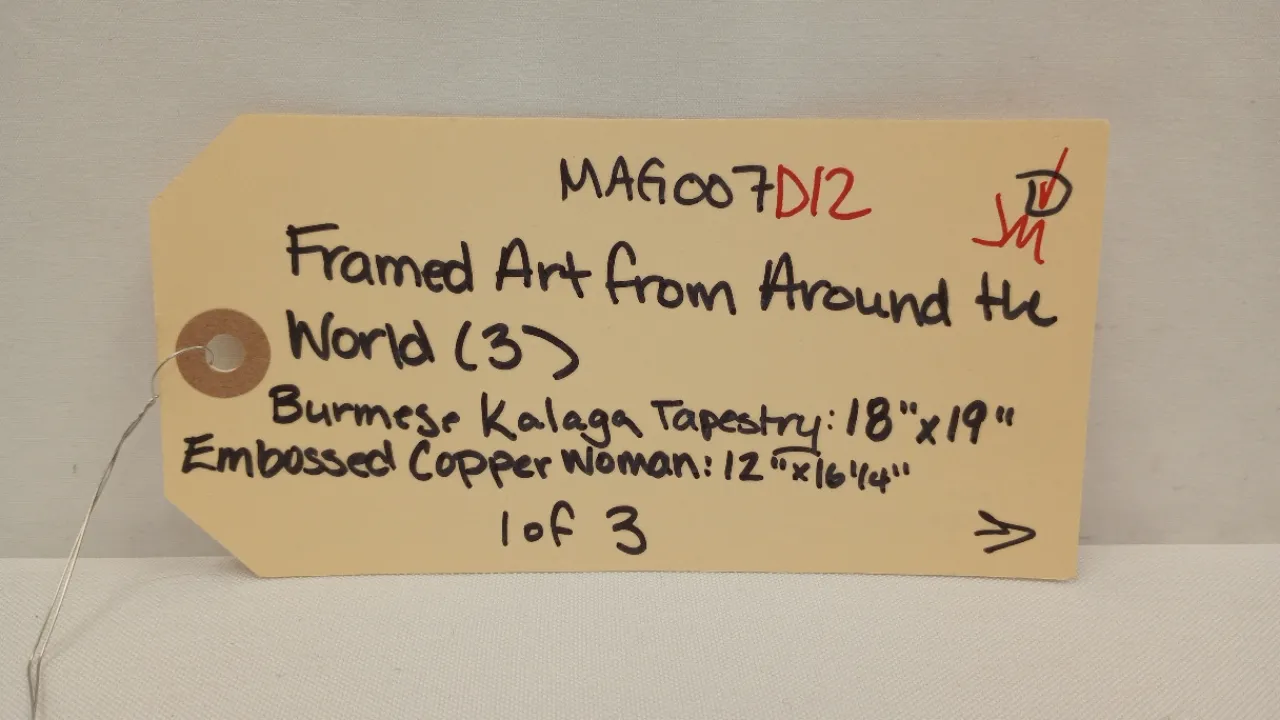 MAG007D12
D
JM
Framed Art from Around the
World (3)
Burmese Kalaga Tapestry: 18"x19"
Embossed Copper Woman: 12"x16 1/4"
1 of 3